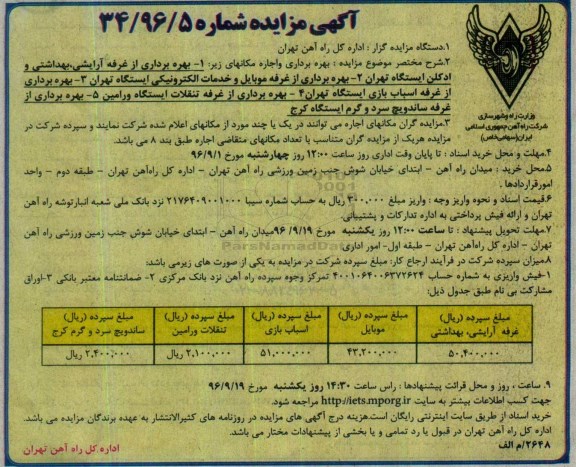 آگهی مزایده شماره ۳۴/۹۶/۵
وزارت راه و شهرسازی
شرکت راه آهن جمهوری اسلامی
ایران (سهامی خاص)
۱.دستگاه مزایده گزار : اداره کل راه آهن تهران
۲.شرح مختصر موضوع مزایده : بهره برداری واجاره مکانهای زیر: ۱- بهره برداری از غرفه آرایشی،بهداشتی و
ادکلن ایستگاه تهران ۲- بهره برداری از غرفه موبایل و خدمات الکترونیکی ایستگاه تهران ۳- بهره برداری
از غرفه اسباب بازی ایستگاه تهران ۴ - بهره برداری از غرفه تنقلات ایستگاه ورامین ۵- بهره برداری از
غرفه ساندویچ سرد و گرم ایستگاه کرج
۳.مزایده گران مکانهای اجاره می توانند در یک یا چند مورد از مکانهای اعلام شده شرکت نمایند و سپرده شرکت در
مزایده هریک از مزایده گران متناسب با تعداد مکانهای متقاضی اجاره طبق بند ۸ می باشد.
۴.مهلت و محل خرید اسناد : تا پایان وقت اداری روز ساعت ۱۲:۰۰ روز چهارشنبه مورخ ۹۶/۹/۱
۵.محل خرید : میدان راه آهن - ابتدای خیابان شوش جنب زمین ورزشی راه آهن تهران - اداره کل راه‌آهن تهران - طبقه دوم - واحد
امورقراردادها .
۶.قیمت اسناد و نحوه واریز وجه : واریز مبلغ ۳۰۰,۰۰۰ ریال به حساب شماره سیبا ۲۱۷۶۴۰۹۰۰۱۰۰۰ نزد بانک ملی شعبه انبارتوشه راه آهن
تهران و ارائه فیش پرداختی به اداره تدارکات و پشتیبانی.
۷.مهلت تحویل پیشنهاد : تا ساعت ۱۲:۰۰ روز یکشنبه مورخ ۹۶/۹/۱۹میدان راه آهن - ابتدای خیابان شوش جنب زمین ورزشی راه آهن
تهران - اداره کل راه‌آهن تهران - طبقه اول- امور اداری
۸.میزان سپرده شرکت در فرآیند ارجاع کار: مبلغ سپرده شرکت در مزایده به یکی از صورت های زیرمی باشد:
۱-فیش واریزی به شماره حساب ۴۰۰۱۰۶۴۰۰۶۳۷۲۶۲۴ تمرکز وجوه سپرده راه آهن نزد بانک مرکزی ۲- ضمانتنامه معتبر بانکی ۳-اوراق
مشارکت بی نام طبق جدول ذیل:
مبلغ سپرده (ریال) غرفه آرایشی، بهداشتی
مبلغ سپرده (ریال) موبایل
مبلغ سپرده (ریال) اسباب بازی
مبلغ سپرده (ریال) تنقلات ورامین
مبلغ سپرده (ریال) ساندویچ سرد و گرم کرج
۵۰,۴۰۰,۰۰۰
۴۳,۲۰۰,۰۰۰
۵۱,۰۰۰,۰۰۰
۲,۱۰۰,۰۰۰ ریال
۲,۴۰۰,۰۰۰ ریال
۹. ساعت ، روز و محل قرائت پیشنهادها : راس ساعت ۱۴:۳۰ روز یکشنبه مورخ ۹۶/۹/۱۹
جهت کسب اطلاعات بیشتر به سایت http://iets.mporg.ir مراجعه شود.
خرید اسناد از طریق سایت اینترنتی رایگان است.هزینه درج آگهی های مزایده در روزنامه های کثیرالانتشار به عهده برندگان مزایده می باشد.
اداره کل راه آهن تهران در قبول یا رد تمامی و یا بخشی از پیشنهادات مختار می باشد.
۲۶۴۸/م الف
اداره کل راه آهن تهران